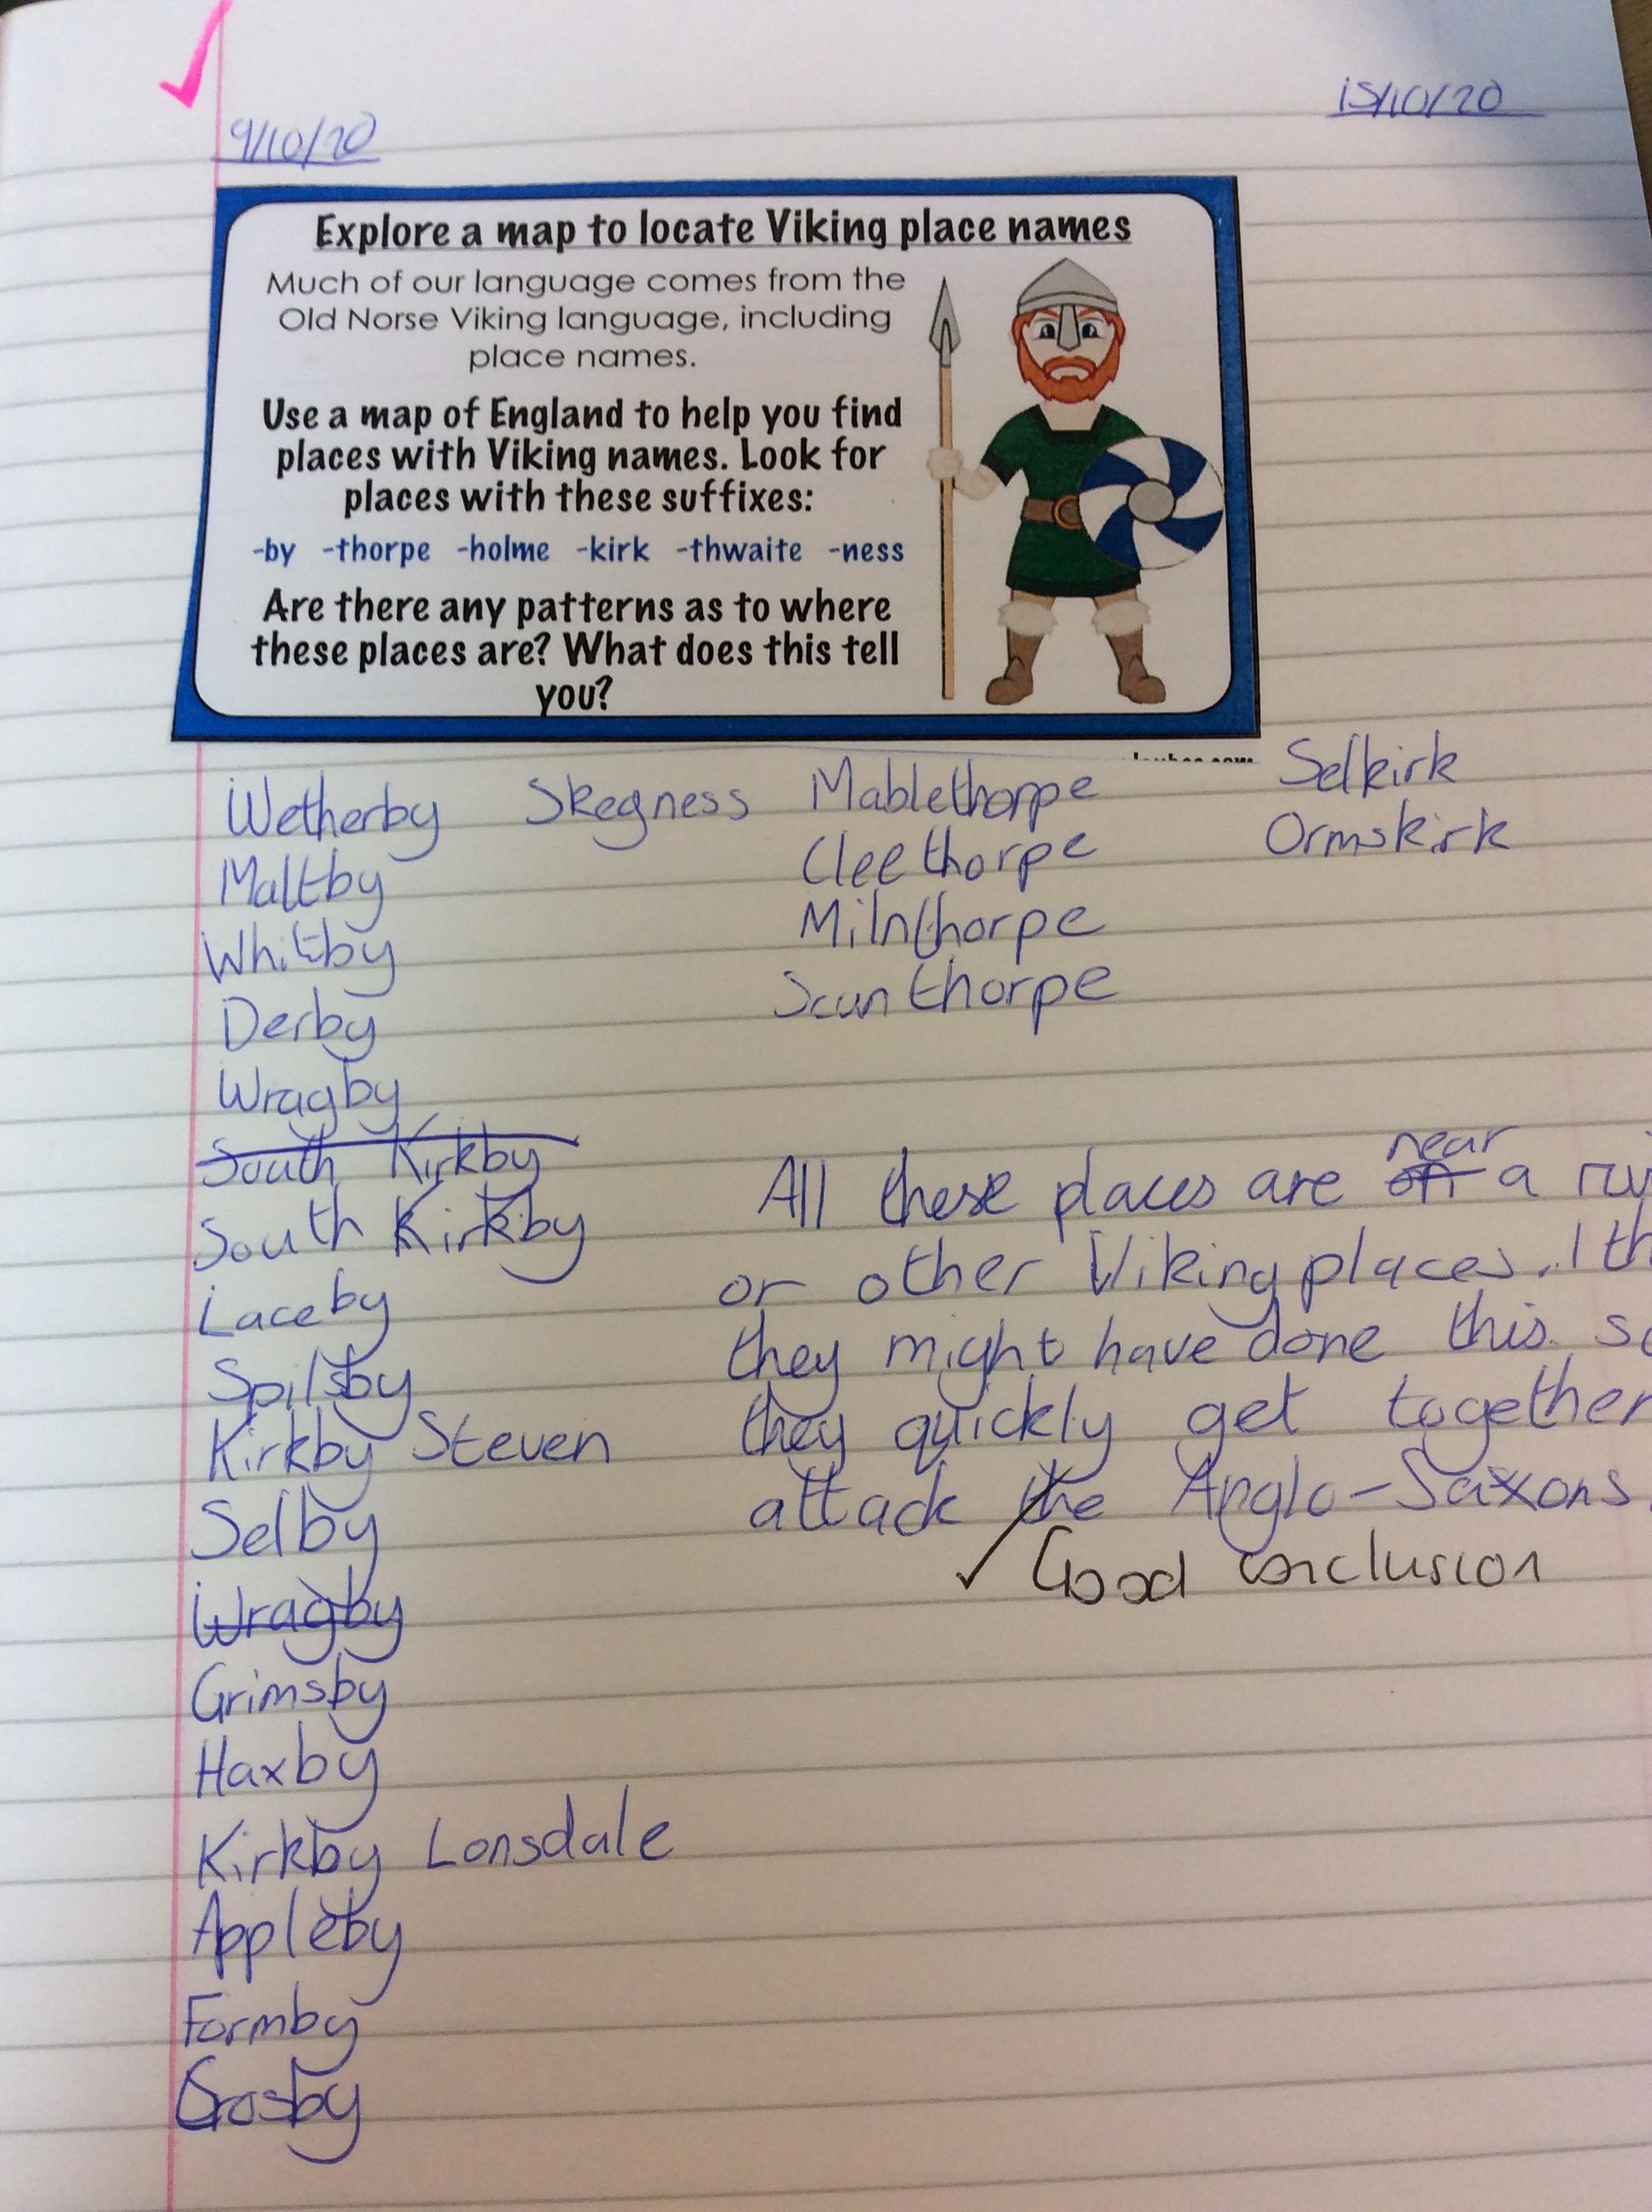 9/10/20
15/10/20
Explore a map to locate Viking place names
Much of our language comes from the
Old Norse Viking language, including
place names.
Use a map of England to help you find
places with Viking names. Look for
places with these suffixes:
-by -thorpe -holme -kirk -thwaite -ness
Are there any patterns as to where
these places are? What does this tell
you?
Wetherby
Maltby
Whitby
Derby
Wragby
South Kirkby
South Kirkby
Laceby
Spilsby
Kirkby Steven
Selby
Wragby
Grimsby
Haxby
Kirkby Lonsdale
Appleby
Formby
Crosby
Skegness
Mablethorpe
Cleethorpe
Milnthorpe
Scunthorpe
Selkirk
Ormskirk
near
All these places are on a
or other Viking places. I
they might have done this
they quickly get together
attack the Anglo-Saxons.
Good conclusion